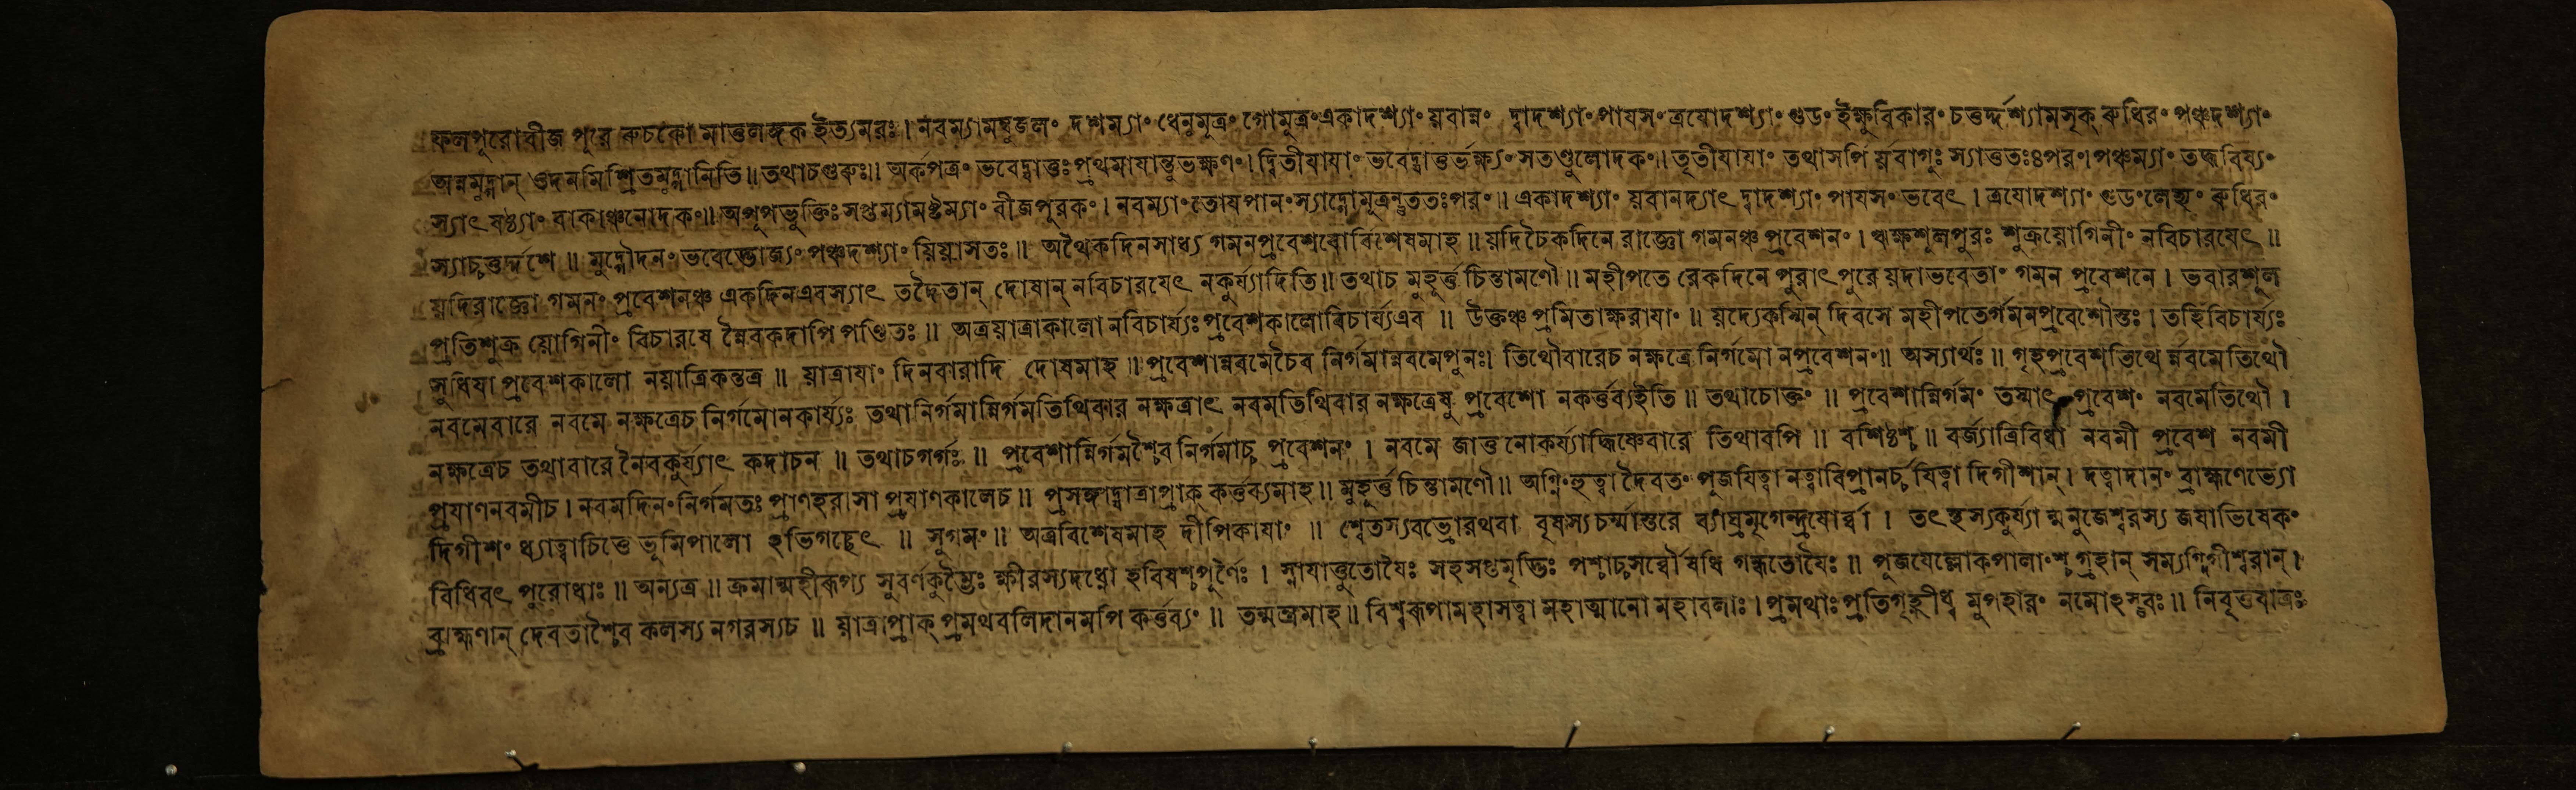 ফলপূরোবীজ পূরে ৰুচকো মাতুলঙ্গক ইত্যমরঃ। নবম্যামম্বুজল০ দশম্যা০ ধেনুমূত্র০ গোমূত্র০ একাদশ্যা০ য়বান্ন০ দ্বাদশ্যা০ পাযস০ ত্রযোদশ্যা০ গুড০ ইক্ষুবিকার০ চতুর্দ্দশ্যামসৃক্ ৰুধির০ পঞ্চদশ্যা০
অন্নমুদ্গান্ ওদনমিশ্রিতমুদ্গানিতি॥ তথাচগুৰুঃ॥ অর্কপত্র০ ভবেদ্বাত্তঃপ্রথমাযান্তুভক্ষণ০। দ্বিতীযাযা০ ভবেদ্বাত্তর্ভক্ষ্য০ সতণ্ডুলোদক০॥ তৃতীযাযা০ তথাসর্পি র্য়বাগুঃ স্যাত্ততঃঽপর০। পঞ্চম্যা০ তদ্ধবিষ্য০
স্যাৎ ষষ্ঠ্যা০ বাকাঞ্চনোদক০॥ অপূপভুক্তিঃ সপ্তম্যামষ্টম্যা০ বীজপূরক০। নবম্যা০ তোযপান০ স্যাদ্গোমূত্রন্তুততঃপর০॥ একাদশ্যা০ য়বানদ্যাৎ দ্বাদশ্যা০ পাযস০ ভবেৎ। ত্রযোদশ্যা০ গুড০ লেহ্য০ ৰুধির০
স্যাচ্চতুর্দ্দশে॥ মুদ্গৌদন০ ভবেদ্ভোজ্য০ পঞ্চদশ্যা০ য়িয়াসতঃ॥ অথৈকদিনসাধ্য গমনপ্রবেশযোর্বিশেষমাহ॥ য়দিচৈকদিনে রাজ্ঞো গমনঞ্চ প্রবেশন০। ঋক্ষশূলপুরঃ শুক্রয়োগিনী০ নবিচারযেৎ॥
য়দিরাজ্ঞো গমন০ প্রবেশনঞ্চ একদিনএবস্যাৎ তদৈতান্ দোষান্ নবিচারযেৎ নকুর্য্যাদিতি॥ তথাচ মুহূর্ত্ত চিন্তামণৌ॥ মহীপতে রেকদিনে পুরাৎ পুরে য়দাভবেতা০ গমন প্রবেশনে। ভবারশূল
প্রতিশুক্র য়োগিনী০ বিচারযে ন্নৈবকদাপি পণ্ডিতঃ॥ অত্রয়াত্রাকালো নবিচার্য্যঃ প্রবেশকালোবিচার্য্যএব॥ উক্তঞ্চ প্রমিতাক্ষরাযা০॥ য়দ্যেকস্মিন্ দিবসে মহীপতের্গমনপ্রবেশৌস্তঃ। তর্হিবিচার্য্যঃ
সুধিযা প্রবেশকালো নয়াত্রিকস্তত্র॥ য়াত্রাযা০ দিনবারাদি দোষমাহ॥ প্রবেশান্নবমেচৈব নির্গমান্নবমেপুনঃ। তিথৌবারেচ নক্ষত্রে নির্গমো নপ্রবেশন০॥ অস্যার্থঃ॥ গৃহপ্রবেশতিথে র্ন্নবমেতিথৌ
নবমেবারে নবমে নক্ষত্রেচ নির্গমোনকার্য্যঃ তথানির্গমান্নির্গমতিথিবার নক্ষত্রাৎ নবমতিথিবার নক্ষত্রেষু প্রবেশো নকর্ত্তব্যইতি॥ তথাচোক্ত০॥ প্রবেশান্নির্গম০ তস্মাৎ প্রবেশ০ নবমেতিথৌ।
নক্ষত্রেচ তথাবারে নৈবকুর্য্যাৎ কদাচন॥ তথাচগর্গঃ॥ প্রবেশান্নির্গমশ্চৈব নির্গমাচ্চ প্রবেশন০। নবমে জাতু নোকর্য্যাদ্ধিষ্ণেবারে তিথাবপি॥ বশিষ্ঠশ্চ॥ বর্জ্যাত্রিবিধা নবমী প্রবেশ নবমী
প্রযাণনবমীচ। নবমদিন০ নির্গমতঃ প্রাণহরাসা প্রযাণকালেচ॥ প্রসঙ্গাদ্যাত্রাপ্রাক্ কর্ত্তব্যমাহ॥ মুহূর্ত্ত চিন্তামণৌ॥ অগ্নি০ হুত্বা দৈবত০ পূজযিত্বা নত্বাবিপ্রানর্চ্চযিত্বা দিগীশান্। দত্বাদান০ ব্রাহ্মণেভ্যো
দিগীশ০ ধ্যাত্বাচিত্তে ভূমিপালো ঽভিগচ্ছেৎ॥ সুগম০॥ অত্রবিশেষমাহ দীপিকাযা০॥ শ্বেতস্যবভ্রোরথবা বৃষস্যচর্ম্মান্তরে ব্যাঘ্রমৃগেন্দ্রযোর্ব্বা। তৎ স্থস্যকুর্য্যা ন্মনুজেশ্বরস্য জযাভিষেক০
বিধিবৎ পুরোধাঃ॥ অন্যত্র॥ ক্রমান্মহীৰূপ্য সুবর্ণকুম্ভৈঃ ক্ষীরস্যদধ্নো হবিষশ্চপূর্ণৈঃ। স্নাযাত্তুতোযৈঃ সহসপ্তমৃদ্ভিঃ পশ্চাচ্চসর্ব্বৌষধি গন্ধতোযৈঃ॥ পূজযেল্লোকপালা০শ্চ গ্রহান্ সম্যগ্দিগীশ্বরান্।
ব্রাহ্মণান্ দেবতাশ্চৈব কলস্য নগরস্যচ॥ য়াত্রাপ্রাক্ প্রমথবলিদানমপি কর্ত্তব্য০॥ তন্মন্ত্রমাহ॥ বিশ্বৰূপামহাসত্বা মহাত্মানো মহাবলাঃ। প্রমথাঃ প্রতিগৃহ্ণীধ্ব মুপহার০ নমোঽস্তুবঃ॥ নিবৃত্তযাত্রঃ